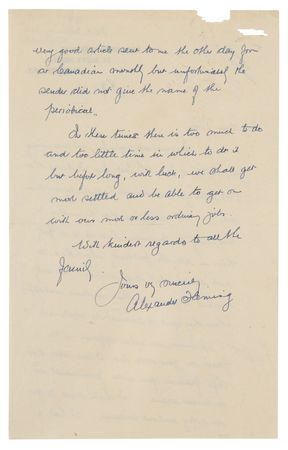 very good article sent to me the other day from
a Canadian monthly but unfortunately the
sender did not give the name of the
periodical.
In these times there is too much to do
and too little time in which to do it
but before long, with luck, we shall get
more settled and be able to get on
with our more or less ordinary jobs.
With kindest regards to all the
family.
Yours very sincerely
Alexander Fleming